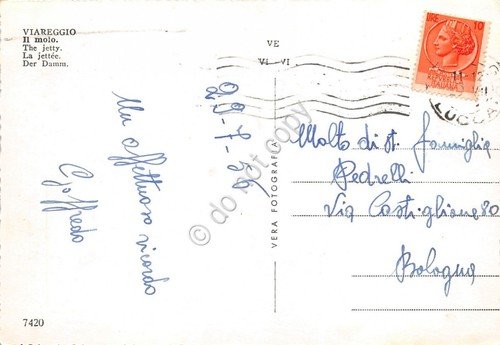 VIAREGGIO
Il molo.
The jetty.
La jettée.
Der Damm.
VE
VI - VI
LIRE 10
ITALIANA
LUCCA
29-7-56
Un affettuoso ricordo
Goffredo
VERA FOTOGRAFIA
Molto di st. famiglia
Pedrelli
Via Castiglione 80
Bologna
7420
do not copy